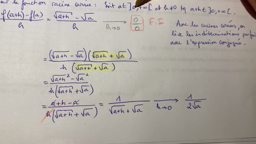 la fonction racine carrée : Soit a ∈ ]0,+∞[ et h≠0 tq a+h ∈ ]0,+∞[.
f(a+h)-f(a) / h = √(a+h) - √a / h → h→0 [0/0] F.I.
Avec les racines carrées, on
lève les indéterminations
avec l'expression conjuguée.
= (√(a+h) - √a)(√(a+h) + √a) / h (√(a+h) + √a)
= √(a+h)² - √a² / h(√(a+h) + √a)
= a+h-a / h(√(a+h) + √a) = 1 / √(a+h) + √a → h→0 1 / 2√a